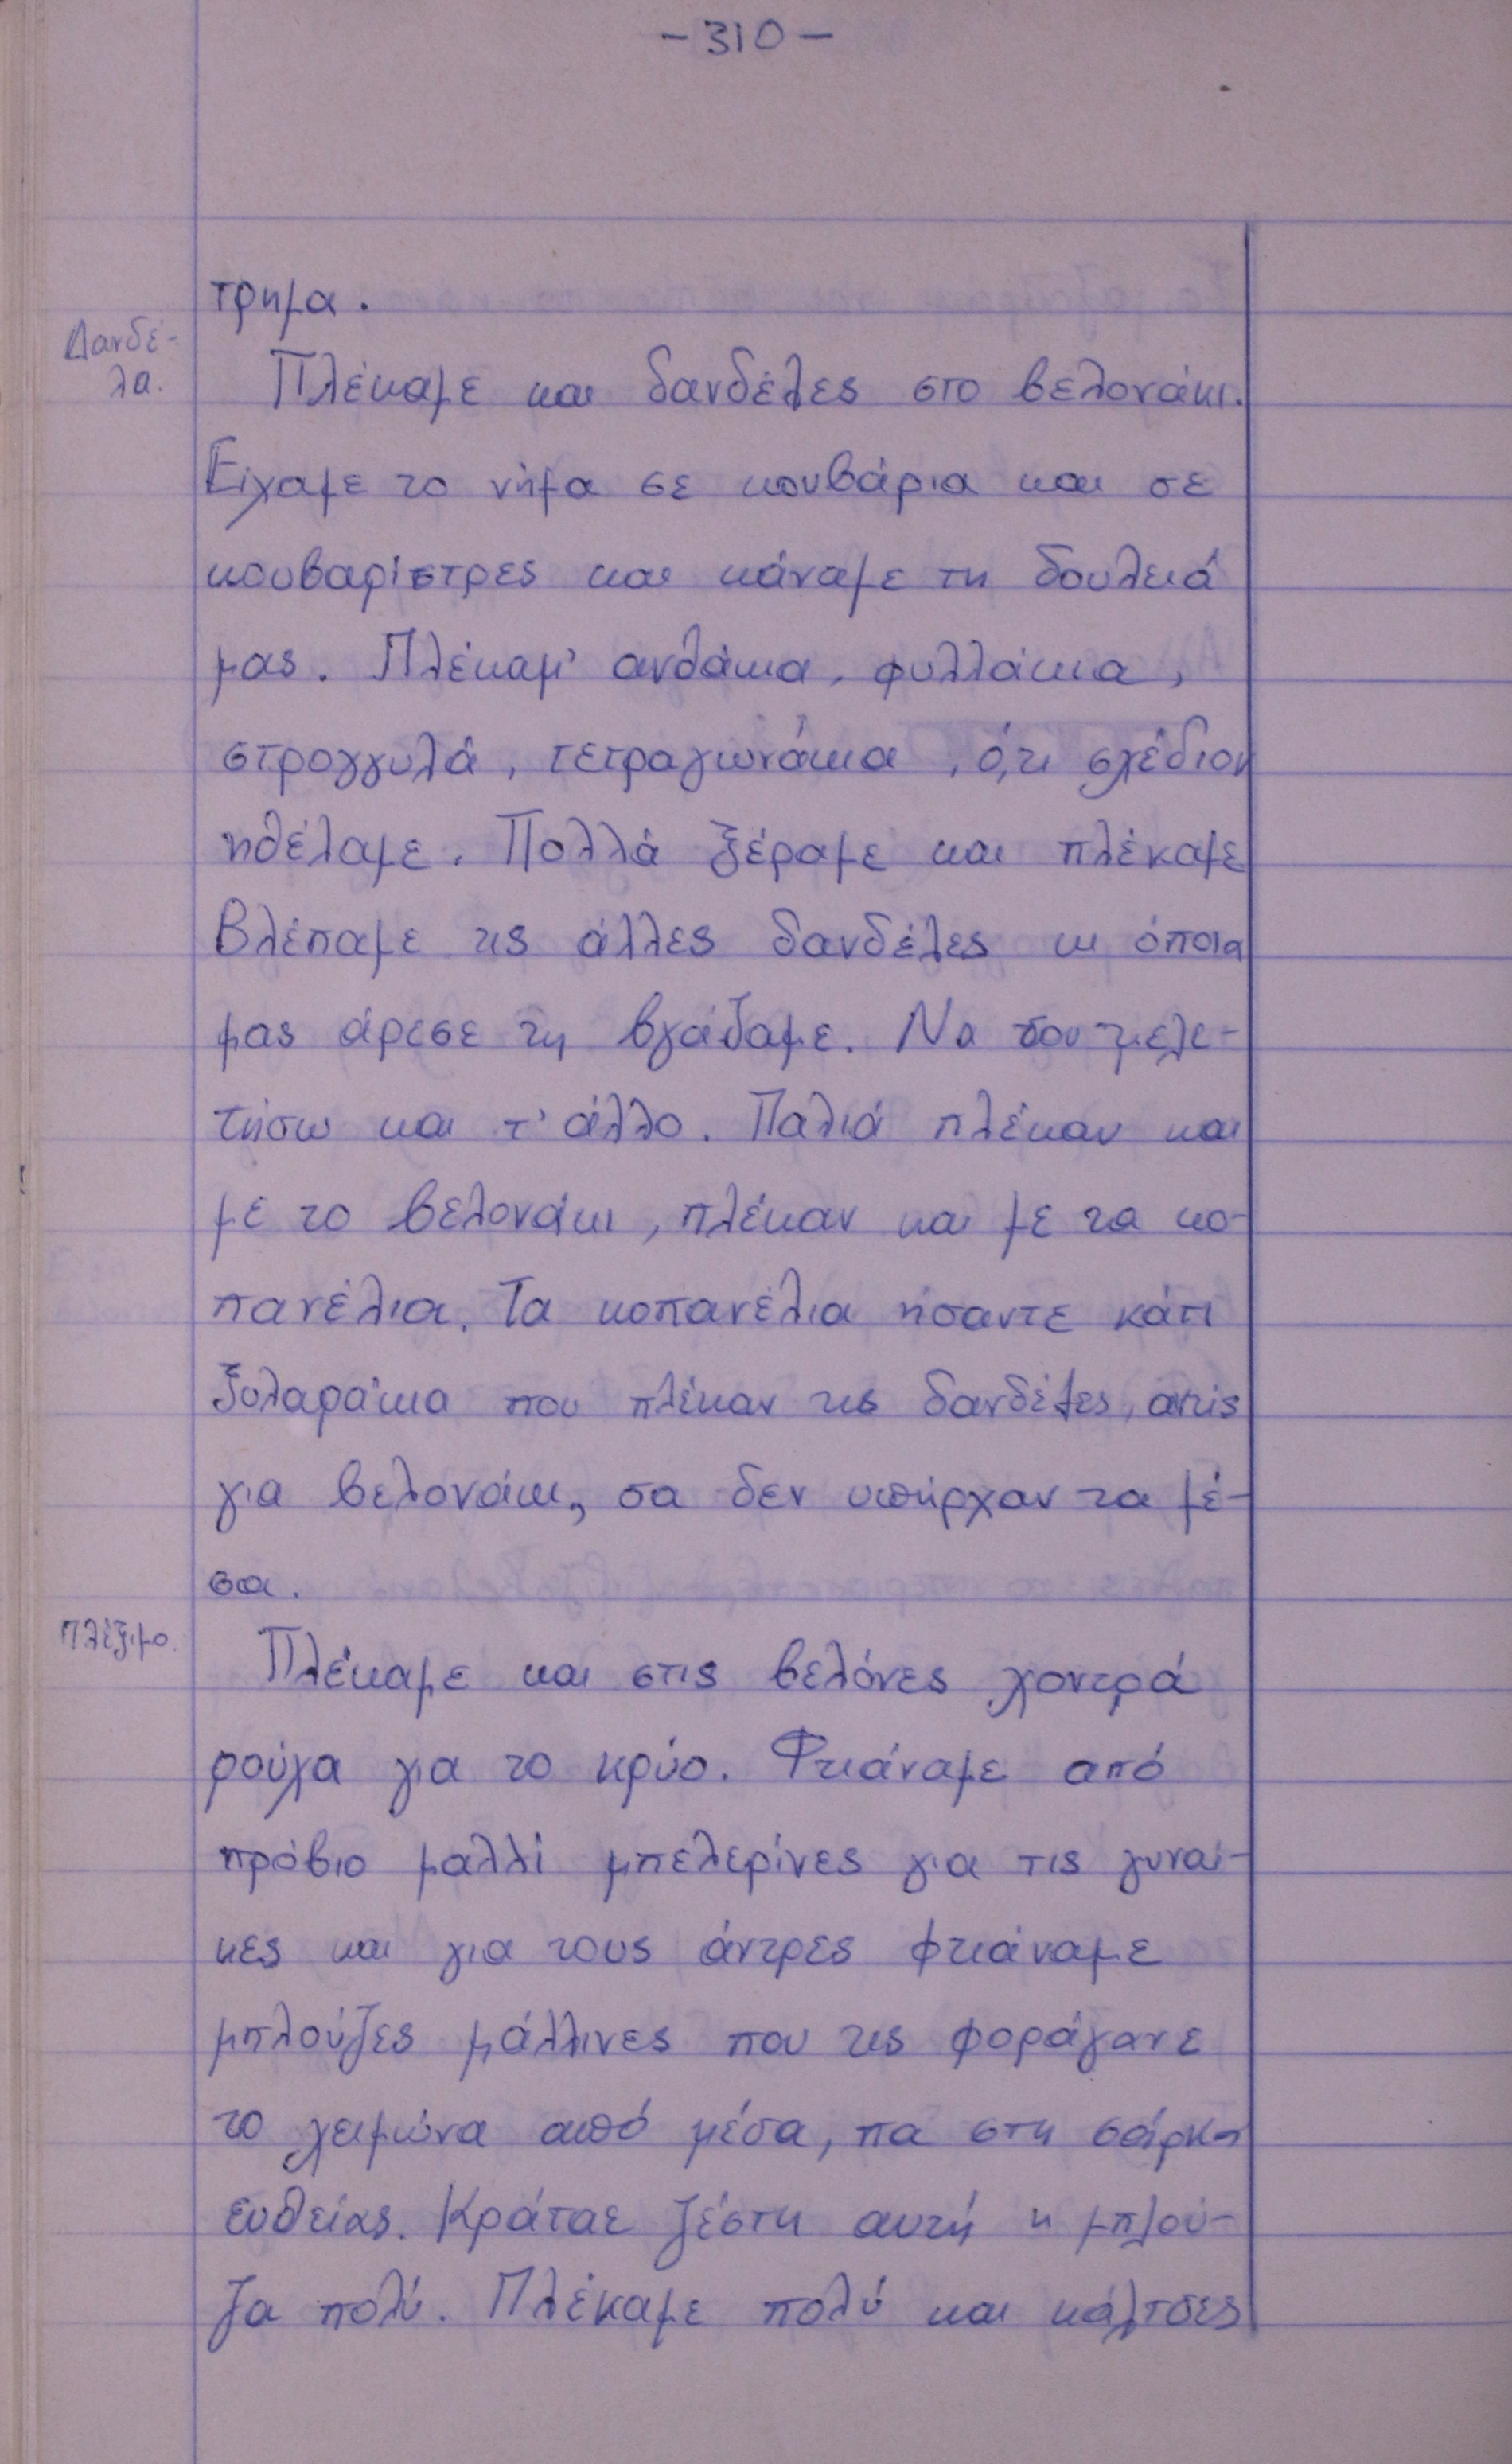 -310-
τρημα.
Δανδέ-
λα.
Πλέκαμε και δανδέλες στο βελονάκι.
Είχαμε το νήμα σε κουβάρια και σε
κουβαρίστρες και κάναμε τη δουλειά
μας. Πλέκαμ' ανθάκια, φυλλάκια,
στρογγυλά, τετραγωνάκια, ό,τι σχέδιον
ηθέλαμε. Πολλά ξέραμε και πλέκαμε
Βλέπαμε τις άλλες δανδέλες κι όποια
μας άρεσε τη βγάζαμε. Να σου μελε-
τήσω και τ' άλλο. Παλιά πλέκαν και
με το βελονάκι, πλέκαν και με τα κο-
πανέλια. Τα κοπανέλια ήσαντε κάτι
ξυλαράκια που πλέκαν τις δανδέλες, αντίς
για βελονάκι, σα δεν υπήρχαν τα μέ-
σα.
Πλέξιμο.
Πλέκαμε και στις βελόνες χοντρά
ρούχα για το κρύο. Φτιάναμε από
πρόβιο μαλλί μπελερίνες για τις γυναί-
κες και για τους άντρες φτιάναμε
μπλούζες μάλλινες που τις φοράγανε
το χειμώνα από μέσα, πα στη σάρκα
ευθείας. Κράταε ζέστη αυτή η μπλού-
ζα πολύ. Πλέκαμε πολύ και κάλτσες